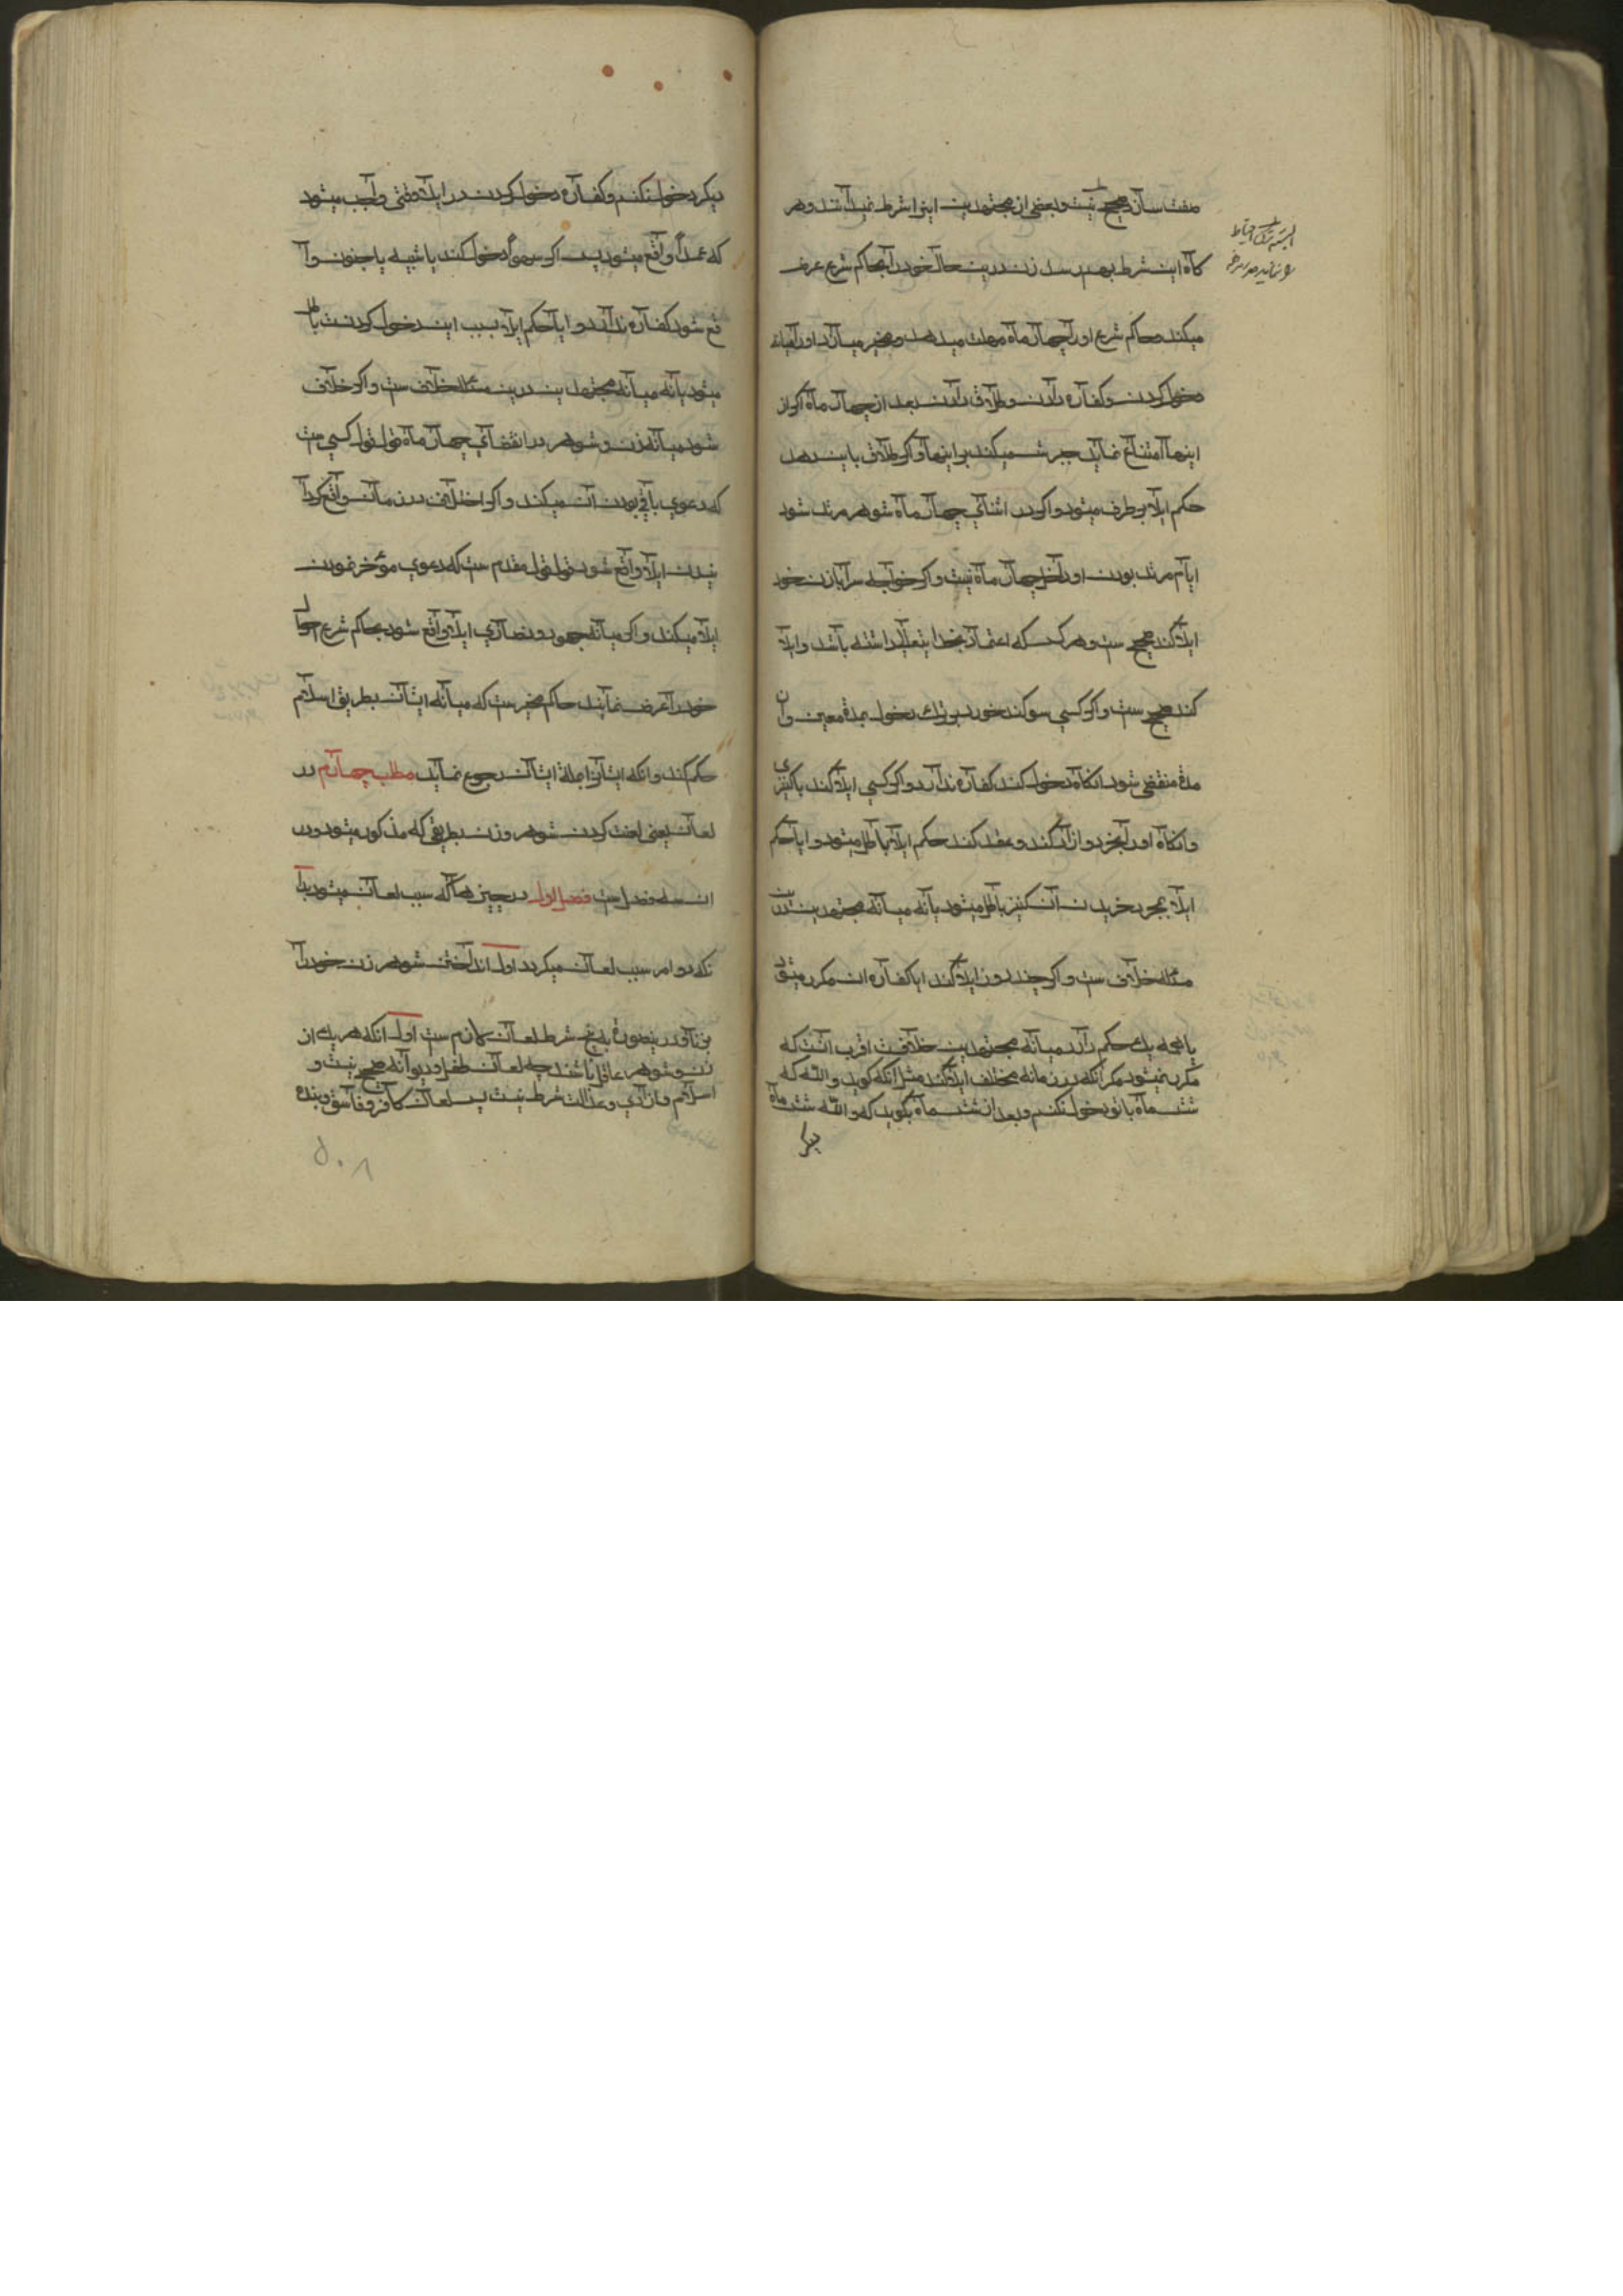 صحیح نیست و بعضی از مجتهدین اینرا شرط نمیدانند و هر
کاه این شرط بهم رسد زن درین حال خود را بحاکم شرع عرض
میکند و حاکم شرع او را چهار ماه مهلت میدهد و مخیر میسازد او را میانه
دخول کردن و کفاره دادن و طلاق دادن بعد از چهار ماه اکر از
اینها امتناع نماید جبرش میکند بر اینها و اکر طلاق باین دهد
حکم ایلا برطرف میشود و اکر در اثنای چهار ماه شوهر مرتد شود
ایام مرتد بودن او داخل چهار ماه نیست و اکر خواجه سرا با زن خود
ایلا کند صحیح ست و هر کس که اعتقاد بخدایتعالی داشته باشد و ایلا
کند صحیح ست و اکر کسی سوکند خورد بر ترک دخول بمدة معین و آن
مدة منقضی شود انکاه دخول کند کفاره ندارد و اکر کسی ایلا کند با کنیزی
وانکاه او را بخرد و ازاد کند و عقد کند حکم ایلا باطل میشود و ایا حکم
ایلا بمجرد خریدن آن کنیز باطل میشود یا نه میانه مجتهدین درین
مسئله خلاف ست و اکر چند روز ایلا کند ایا کفاره ان مکرر میشود
یا همه یک حکم دارد میانه مجتهدین خلافست اقرب آنست که
مکرر نمیشود مکر آنکه در زمانه مختلف ایلا کند مثل آنکه کوید والله که
شش ماه با تو دخول نکنم و بعد از شش ماه بکوید که والله شش ماه
دیکر
البته ترک احتیاط
دیکر دخول نکنم و کفاره دخول کردن در ایلا وقتی واجب میشود
که عمداً واقع میشود پس اکر سهواً دخول کند یا شبه یا جنون وا
قع شود کفاره ندارد و ایا حکم ایلا بسبب این دخول کردنست باطل
میشود یا نه میانه مجتهدین درین مسئله خلاف ست و اکر خلاف
شود میانه زن و شوهر در انقضای چهار ماه قول قول کسی ست
که دعوی باقی بودن آن میکند و اکر اختلاف در زمان واقع کردا
نیدن ایلا واقع شود قول قول مقدم ست که دعوی مؤخر نمودن
ایلا میکند و اکر میانه جهود و نصاری ایلا واقع شود بحاکم شرع احوال
خود را عرض نمایند حاکم مخیر ست که میانه ایشان بطریق اسلام
حکم کند و انکه ایشان را بملة ایشان رجوع نماید مطلب چهارم در
لعان یعنی لعنت کردن شوهر و زن بطریقی که مذکور میشود و در
ان سه فصل ست فصل اول در چیزهائی که سبب لعان میشود بدا
نکه دو امر سبب لعان میکردد اول انداختن شوهر زن خود را
بزنا و در ینصورة پنج شرط لعان لازم ست اول انکه هر یک از
زن و شوهر عاقل باشند چه لعان طفل و دیوانه صحیح نیست و
اسلام و ازادی و عدالت شرط نیست پس لعان کافر و فاسق و بنده
۵۰۸